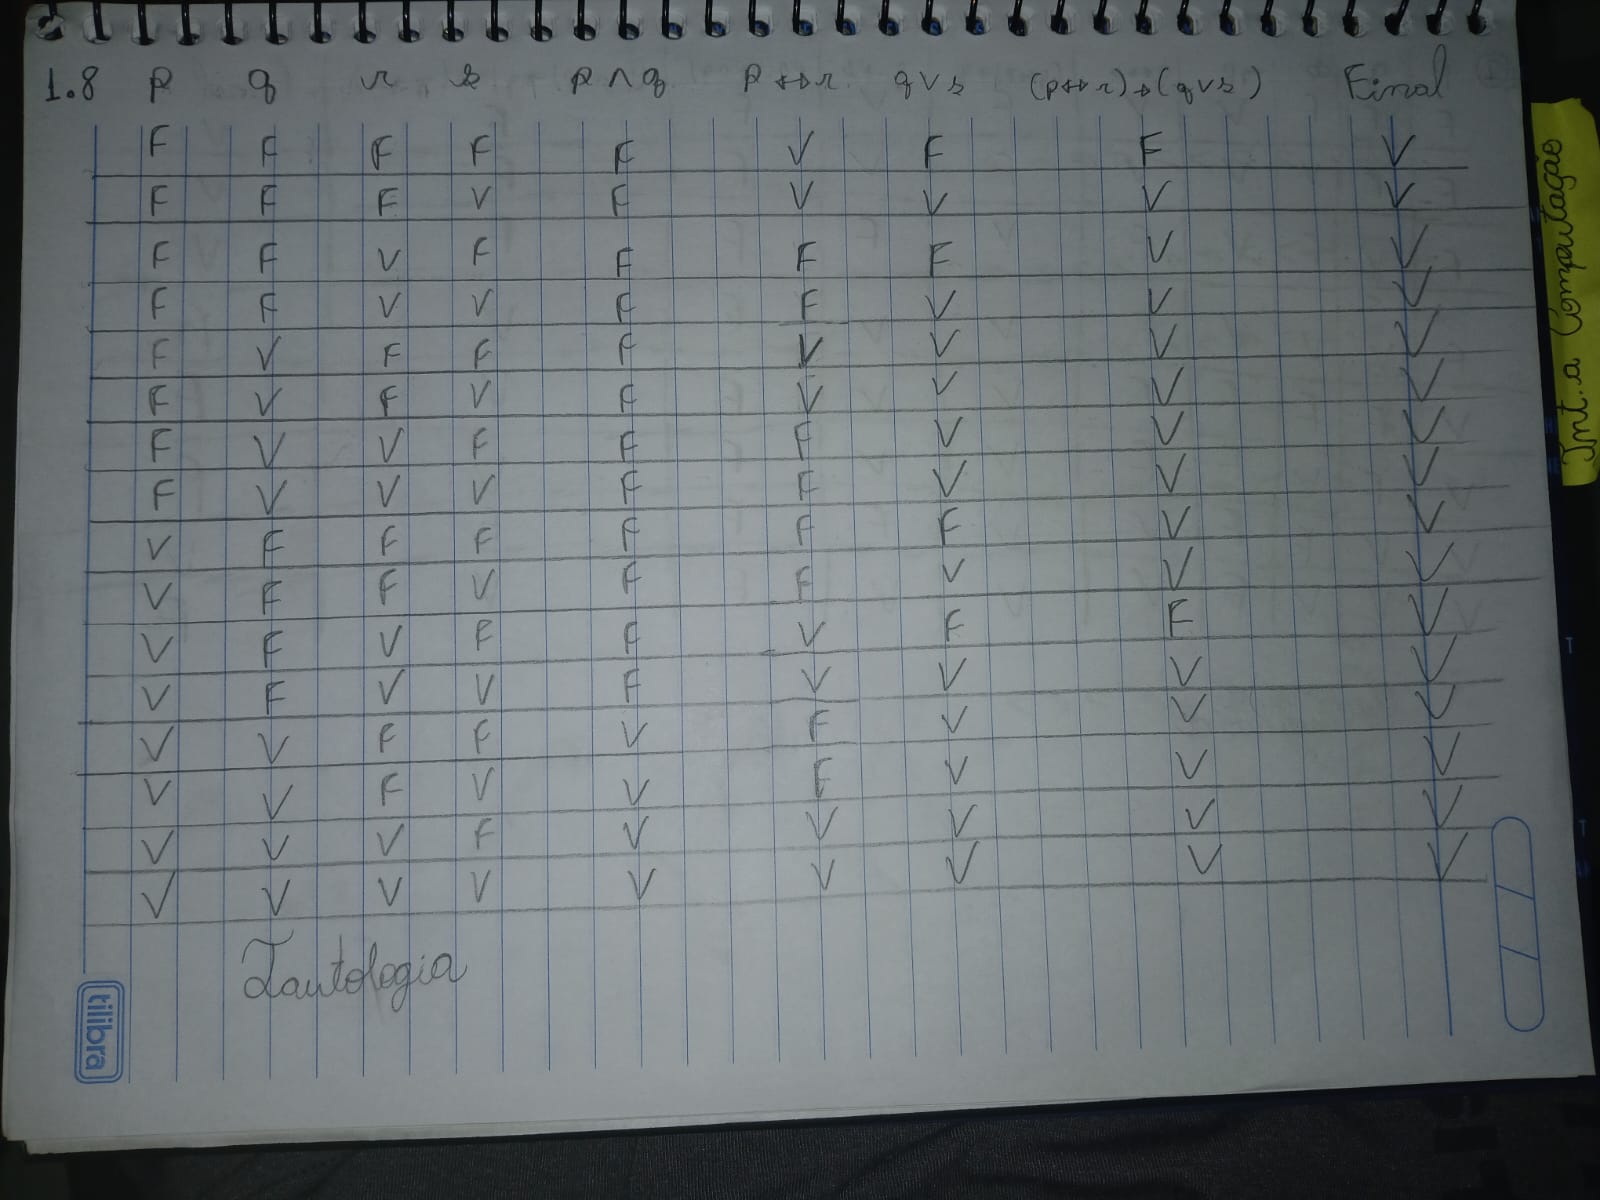 1.8 p q r s p ∧ q p ↔ r q ∨ s (p ↔ r) → (q ∨ s) Final
F F F F F V F F V
F F F V F V V V V
F F V F F F F V V
F F V V F F V V V
F V F F F V V V V
F V F V F V V V V
F V V F F F V V V
F V V V F F V V V
V F F F F F F V V
V F F V F F V V V
V F V F F V F F V
V F V V F V V V V
V V F F V F V V V
V V F V V F V V V
V V V F V V V V V
V V V V V V V V V
Tautologia
tilibra
Int. a Computação